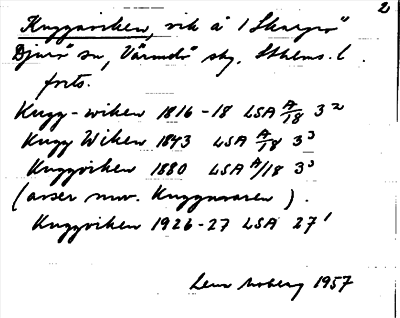 2
Kuggaviken, vik å "Skarpö"
Djurö sn, Värmdö skg. Sthlms. l.
forts.
Kugg-wiken 1816-18 LSA A/18 3²
Kugg Wiken 1843 LSA A/18 3³
Kuggviken 1880 LSA A/18 3³
(avser nuv. Kuggmaren).
Kuggviken 1926-27 LSA 27¹
Lena Moberg 1957